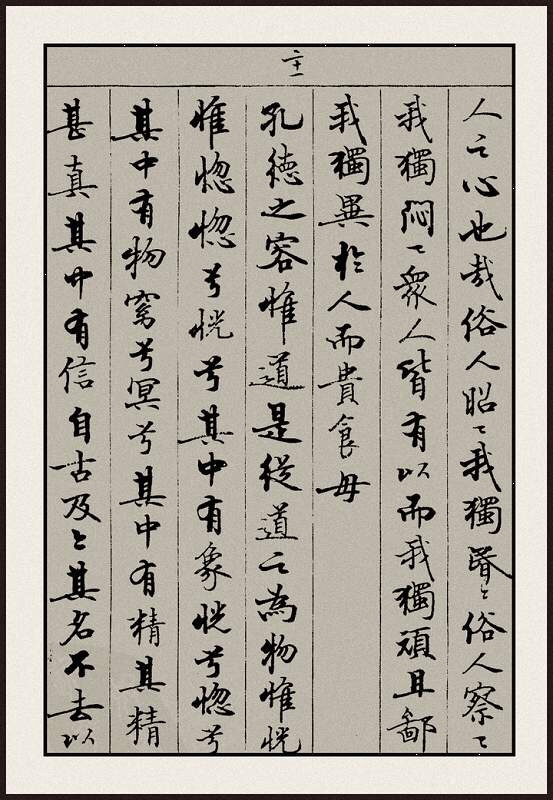 二十一
人之心也哉俗人昭〻我獨昬〻俗人察〻
我獨悶〻衆人皆有以而我獨頑且鄙
我獨異於人而貴食母
孔德之容惟道是從道之為物惟恍
惟惚惚兮恍兮其中有象恍兮惚兮
其中有物窈兮冥兮其中有精其精
甚真其中有信自古及今其名不去以